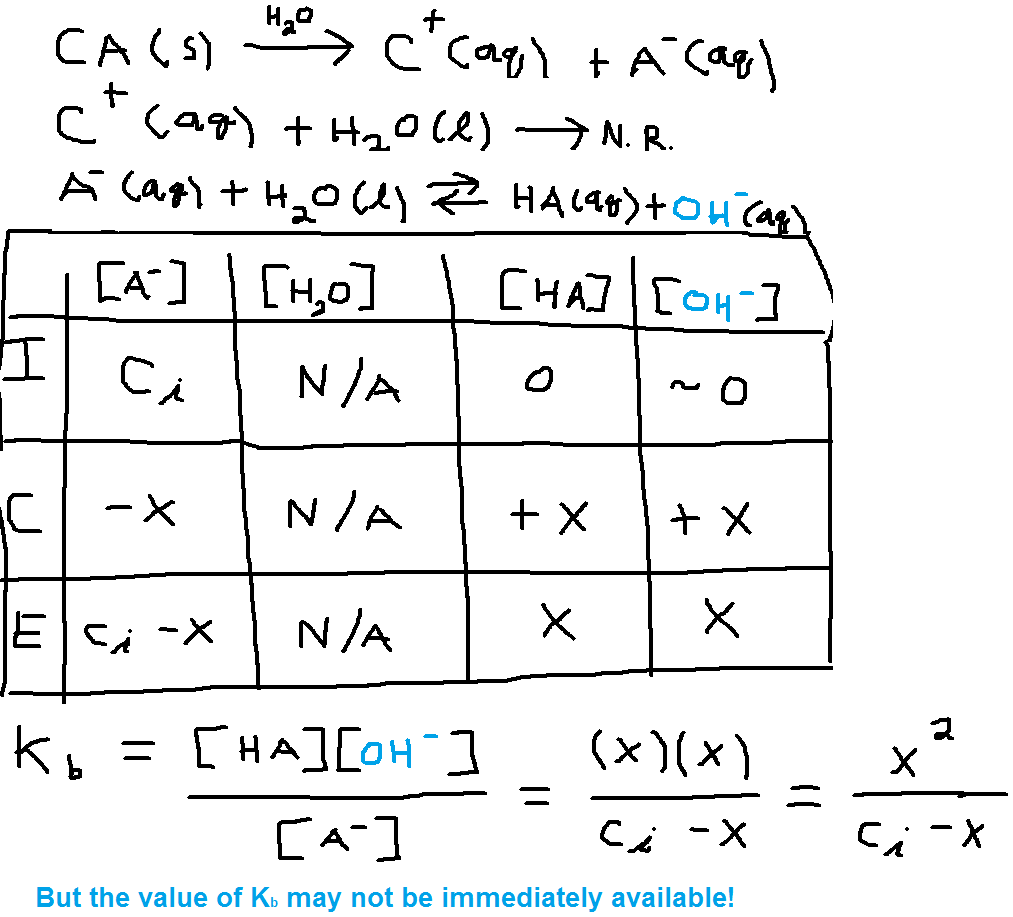 CA(s) —H₂O→ C⁺(aq) + A⁻(aq)
C⁺(aq) + H₂O(l) → N.R.
A⁻(aq) + H₂O(l) ⇌ HA(aq) + OH⁻(aq)
[A⁻] [H₂O] [HA] [OH⁻]
I Cᵢ N/A 0 ~0
C -x N/A +x +x
E Cᵢ-x N/A x x
K_b = [HA][OH⁻] / [A⁻] = (x)(x) / (Cᵢ-x) = x² / (Cᵢ-x)
But the value of K_b may not be immediately available!